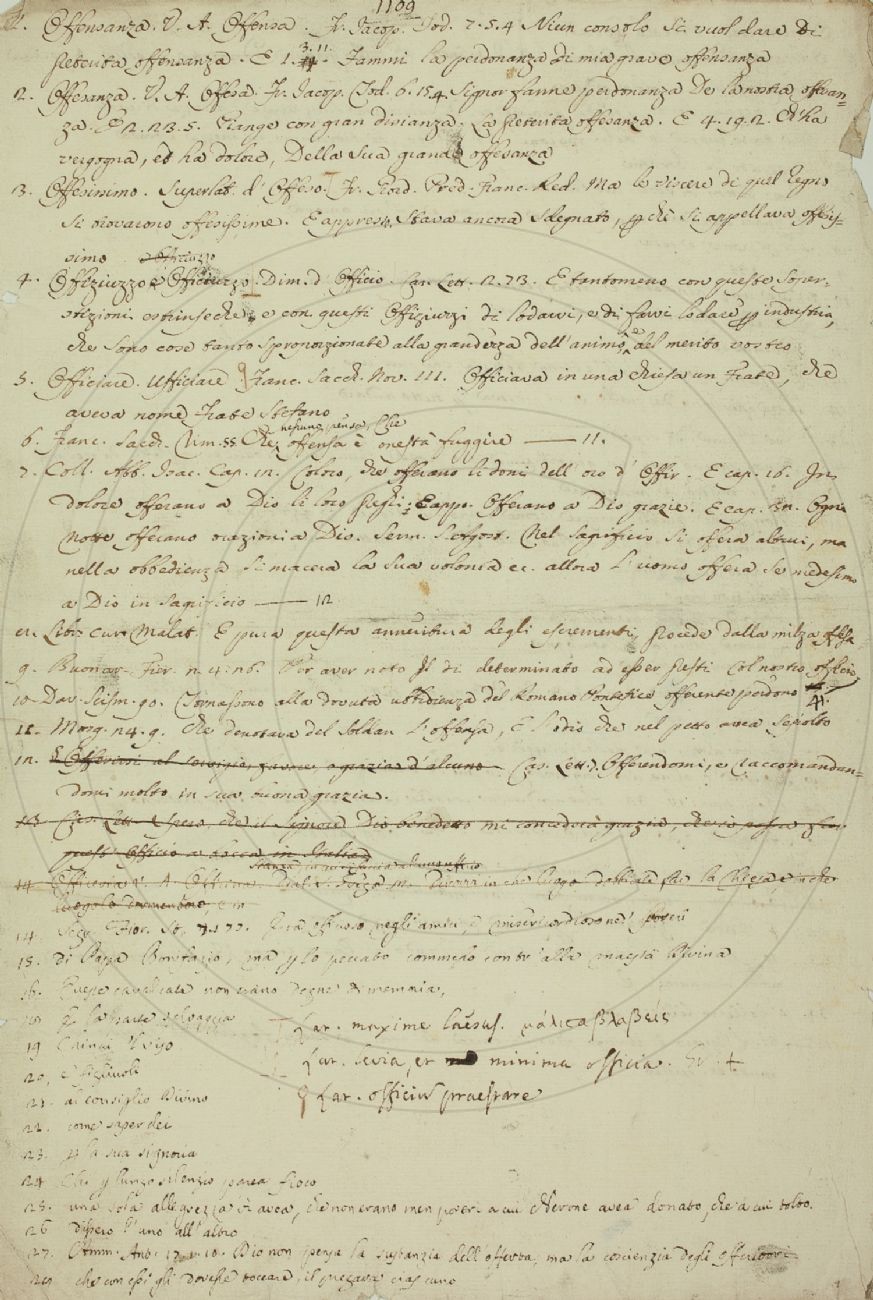 1109
1. Offensanza. V. A. Offensa. Fr. Jacop. Tod. 2. 5. 4 Niun consolo si vuol dare Di
preterita offensanza. E 1. 3. 11. Fammi la perdonanza Di mia grave offensanza
2. Offesanza. V. A. Offesa. Fr. Jacop. Tod. 6. 15. 4. Signor fanne perdonanza De la nostra offesan-
za. E 2. 23. 5. Piange con gran divianza La preterita offesanza. E 4. 19. 2. Ed ha
vergogna, ed ha dolore, Della sua grande offesanza
3. Offesissimo. Superlat. d' Offeso. Fr. Giord. Pred. Franc. Red. Ma le viscere di quel Regno
si trovarono offesissime. E appresso, Stava ancora sdegnato, che si appellava offesis-
simo
4. Offiziuzzo e Officiuzzo. Dim. d' Officio. Car. Lett. 2. 73. E tantomeno con queste soper-
stizioni estrinseche, e con questi Offiziuzzi di lodarvi, e di farvi lodare industria,
che sono cose tanto sproporzionate alla grandezza dell'animo, e del merito vostro
5. Officiare. Ufficiare Franc. Sacch. Nov. 111. Officiava in una chiesa un Frate, che
aveva nome Frate Stefano
nessuno pensa, Che
6. Franc. Sacch. Rim. 55. Che offensa è onestà fuggire — 11.
7. Coll. Abb. Isac. Cap. 12. Coloro, che offerano li doni dell' oro d' Offir. E cap. 16. In
dolore offerano a Dio li loro prieghi; E appo. Offerano a Dio grazie. E cap. Ogni
Notte offerano orazioni a Dio. Serm. S. Agost. Nel sagrificio si offera altrui, ma
nella obbedienza si macera la sua volontà ec. allora l' uomo offera se medesimo
a Dio in sagrificio — 12
8. Libr. cur. Malat. E pura questa anneritura degli escrementi, procede dalla milza offesa.
9. Buonar. Fier. 2. 4. 26. Per aver noto Il dì determinato ad esser presti Col nostro ofizio
10. Dav. Scism. 90. Tornassono alla dovuta ubbidienza del Romano Pontefice offerente perdono
11. Morg. 24. 9. Che denotava del Soldan l' offensa, E l' odio che nel petto avea sepolto
12. Offerirsi al servigio, favore, o grazia d' alcuno Car. Lett. Offerendomi, e raccomandan-
domi molto in sua buona grazia.
13. Car. Lett. Spero, che il Signore Dio benedetto mi concederà grazia, che io possa far
quest' Officio a bocca in Italia
14. Officina
14. Segr. Fior. St. 7. 177. Era offuso negli amici, e misericordioso ne' poveri
15. Di Papa Bonifazio, ma lo peccato commesso contr' alla maestà Divina
cavalcata non erano degne di memoria,
selvaggia
19. Chinai il viso
20.
21. al consiglio Divino
22. come saper dei
23. la sua signoria
24. Chi lungo silenzio parea fioco
25. una sola allegrezza vi avea, che non erano men poveri a cui Nerone avea donato, che a cui tolto.
26. dispero l' uno all' altro
27. Amm. Ant. Dio non pensa la sustanzia dell' offerta, ma la coscienzia degli offeritori
che con essi gli dovesse toccare, il pregava ciascuno
Lat. maxime laesus. μάλιστα βλαβείς
Lat. levia, et minima officia. Gr. +
Lat. officium praestare